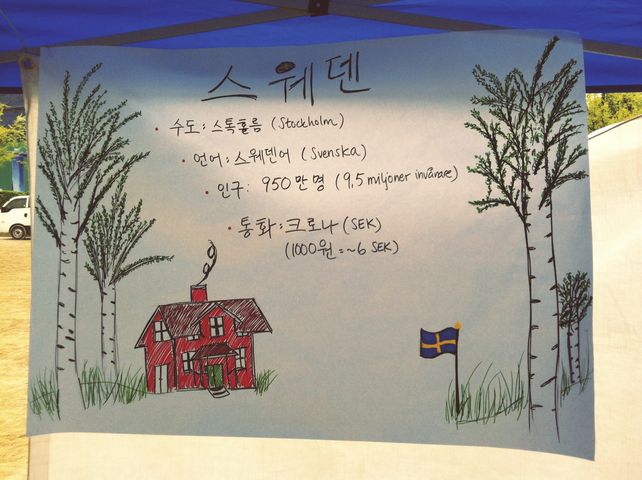 스웨덴
• 수도: 스톡홀름 (Stockholm)
• 언어: 스웨덴어 (Svenska)
• 인구: 950만명 (9,5 miljoner invånare)
• 통화: 크로나 (SEK)
(1000원 = ~6 SEK)